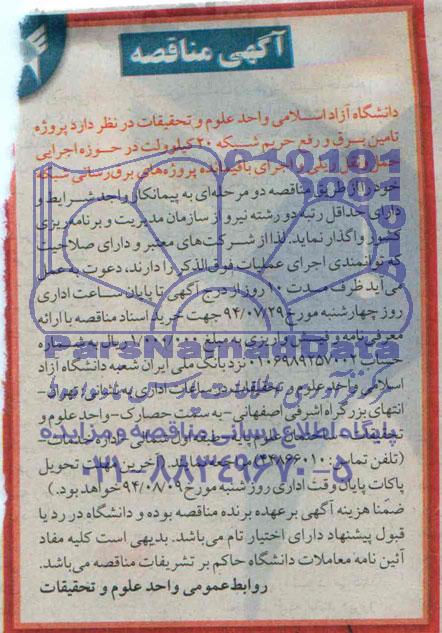 آگهی مناقصه
دانشگاه آزاد اسلامی واحد علوم و تحقیقات در نظر دارد پروژه
تامین برق و رفع حریم شبکه ۲۰ کیلوولت در حوزه اجرایی
حمل و نقل ریلی و اجرای باقیمانده پروژه‌های برق‌رسانی شبکه
خود را از طریق مناقصه دو مرحله‌ای به پیمانکار واجد شرایط و
دارای حداقل رتبه دو رشته نیرو از سازمان مدیریت و برنامه‌ریزی
کشور واگذار نماید. لذا از شرکت‌های معتبر و دارای صلاحیت
که توانمندی اجرای عملیات فوق‌الذکر را دارند، دعوت به عمل
می‌آید ظرف مدت ۱۰ روز از درج آگهی تا پایان ساعت اداری
روز چهارشنبه مورخ ۹۴/۰۷/۲۹ جهت خرید اسناد مناقصه با ارائه
معرفی‌نامه و فیش واریزی به مبلغ ۱/۰۰۰/۰۰۰ ریال به شماره
حساب نزد بانک ملی ایران شعبه دانشگاه آزاد
اسلامی واحد علوم و تحقیقات در ساعات اداری به نشانی تهران-
انتهای بزرگراه اشرفی اصفهانی- به سمت حصارک- واحد علوم و
تحقیقات- ساختمان علوم پایه- طبقه اول شمالی- اداره خدمات-
(تلفن تماس: ۴۴۸۶۶۰۱۰) مراجعه نمایند. (آخرین مهلت تحویل
پاکات پایان وقت اداری روز شنبه مورخ ۹۴/۰۸/۰۹ خواهد بود.)
ضمنا هزینه آگهی بر عهده برنده مناقصه بوده و دانشگاه در رد یا
قبول پیشنهاد دارای اختیار تام می‌باشد. بدیهی است کلیه مفاد
آئین نامه معاملات دانشگاه حاکم بر تشریفات مناقصه می‌باشد.
روابط عمومی واحد علوم و تحقیقات
ParsNamadData
پایگاه اطلاع رسانی مناقصه و مزایده
۰۲۱-۸۸۳۴۹۶۷۰-۵